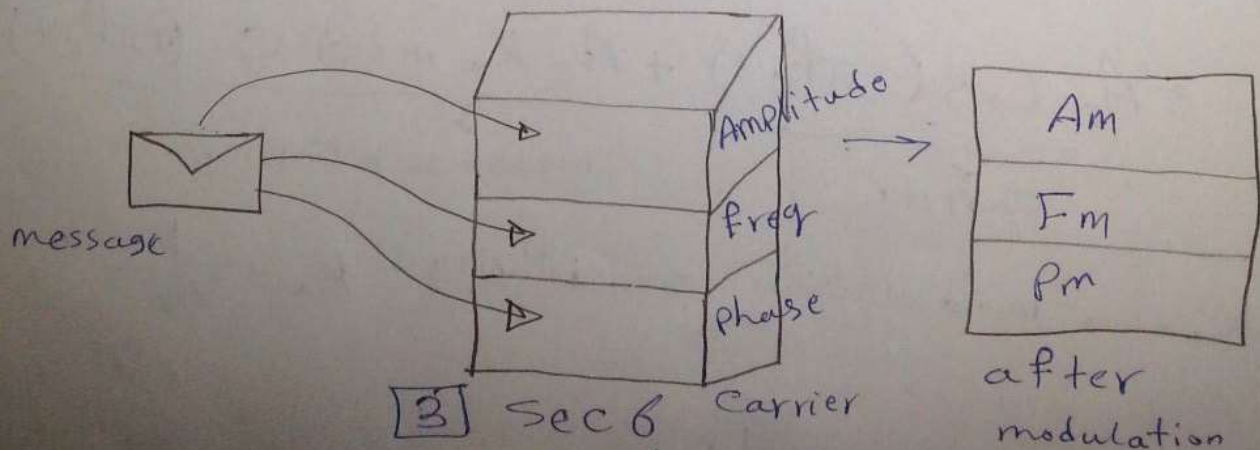 message
Amplitude
freq
phase
Carrier
Am
Fm
Pm
after
modulation
3 Sec 6